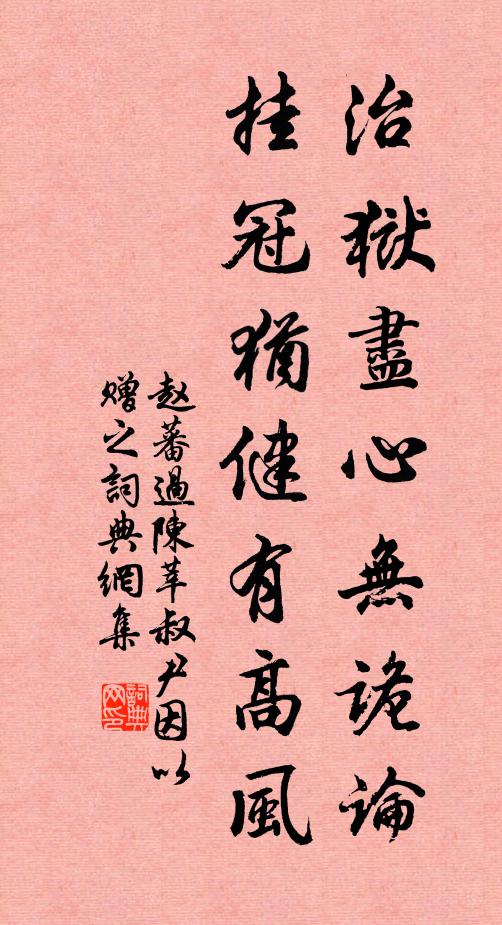 治獄盡心無詭論
挂冠猶健有高風
赵蕃過陳莘叔尹因以
贈之詞典網集
詞典网印